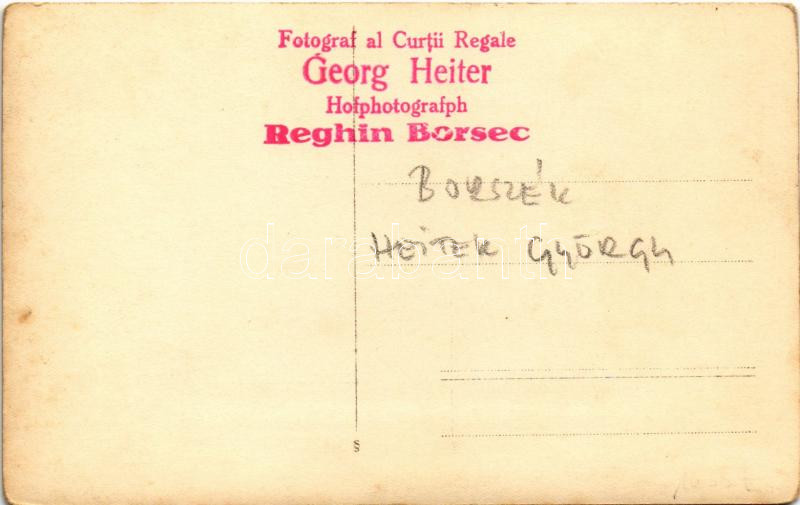 Fotograf al Curții Regale
Georg Heiter
Hofphotografph
Reghin Borsec
BORSZÉK
HEITER GYÖRGY
darabanth
S